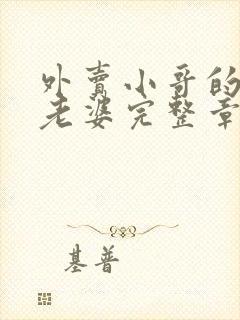 外賣小哥的
老婆完整章
基普